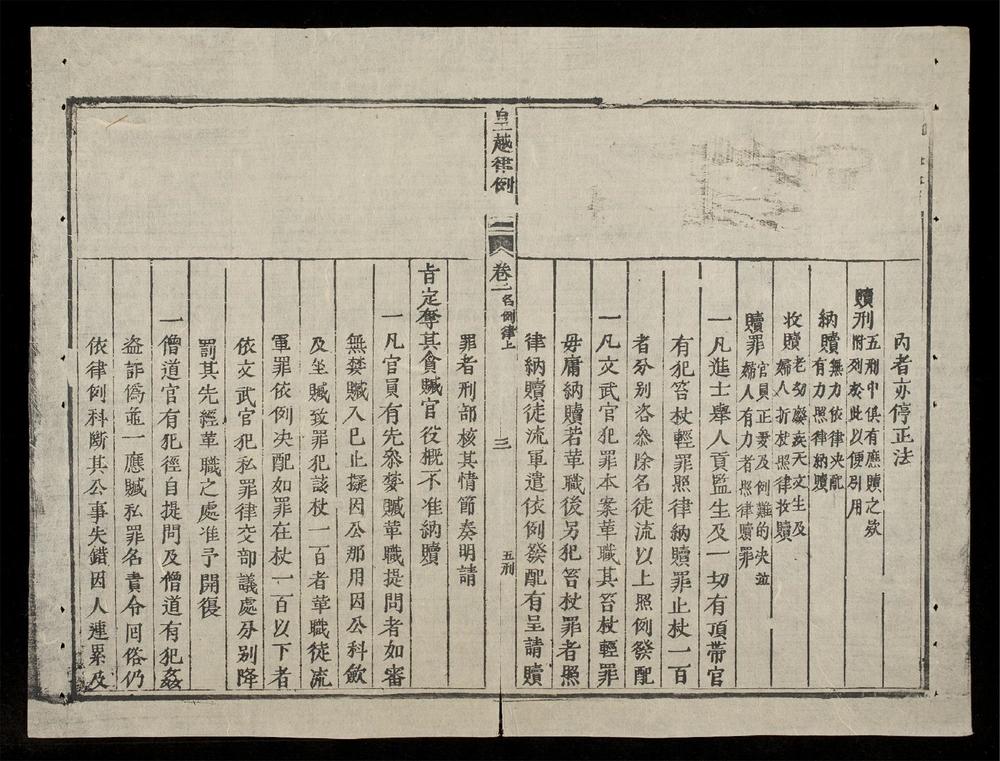 內者亦停正法
贖刑 五刑中俱有應贖之款
附列於此以便引用
納贖 無力依律決配
有力照律納贖
收贖 老幼廢疾天文生及
婦人折杖照律收贖
贖罪 官員正妻及例難的決並
婦人有力者照律贖罪
一凡進士舉人貢監生及一切有頂帶官
有犯笞杖輕罪照律納贖罪止杖一百
者分別咨叅除名徒流以上照例發配
一凡文武官犯罪本案革職其笞杖輕罪
毋庸納贖若革職後另犯笞杖罪者照
律納贖徒流軍遣依例發配有呈請贖
皇越律例
卷二 名例律上
三
五刑
罪者刑部核其情節奏明請
旨定奪其貪贓官役概不准納贖
一凡官員有先叅婪贓革職提問者如審
無婪贓入己止擬因公那用因公科歛
及坐贓致罪犯該杖一百者革職徒流
軍罪依例決配如罪在杖一百以下者
依文武官犯私罪律交部議處分別降
罰其先經革職之處准予開復
一僧道官有犯徑自提問及僧道有犯姦
盗詐僞並一應贓私罪名責令囘俗仍
依律例科斷其公事失錯因人連累及